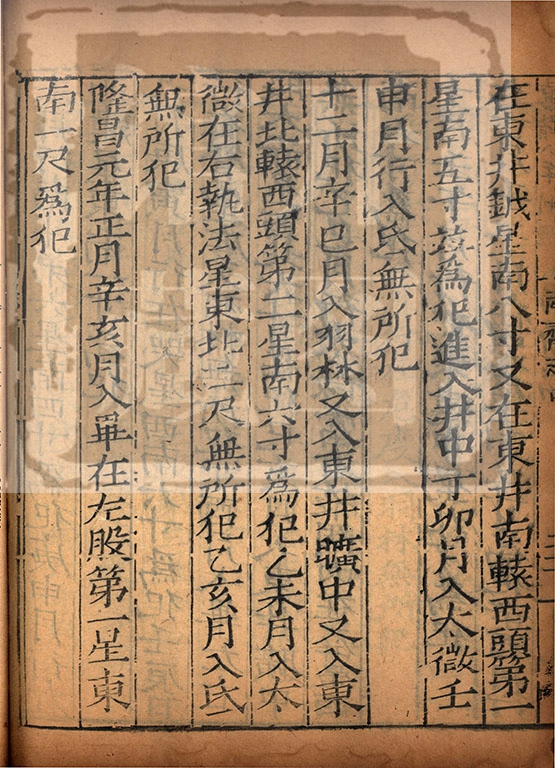 在東井鉞星南八寸又在東井南轅西頭第一
星南五寸並爲犯進入井中丁卯月入太微壬
申月行入氐無所犯
十二月辛巳月入羽林又入東井曠中又入東
井北轅西頭第二星南六寸爲犯乙未月入太
微在右執法星東北二尺無所犯乙亥月入氐
無所犯
隆昌元年正月辛亥月入畢在左股第一星東
南一尺爲犯